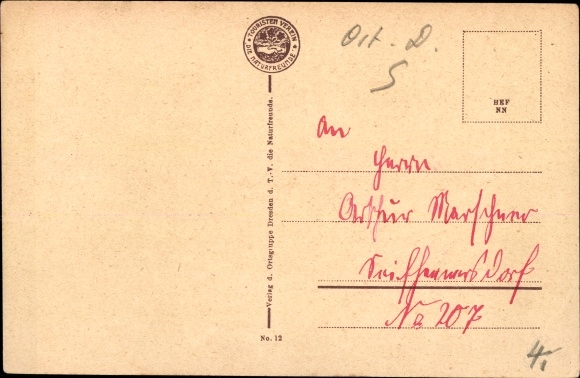 TOURISTEN VEREIN
DIE NATURFREUNDE
Ost-D.
5
HEF
NN
An
Herrn
Arthur Marschner
Seifhennersdorf
No 207
Verlag d. Ortsgruppe Dresden d. T.-V. die Naturfreunde.
No. 12
4,